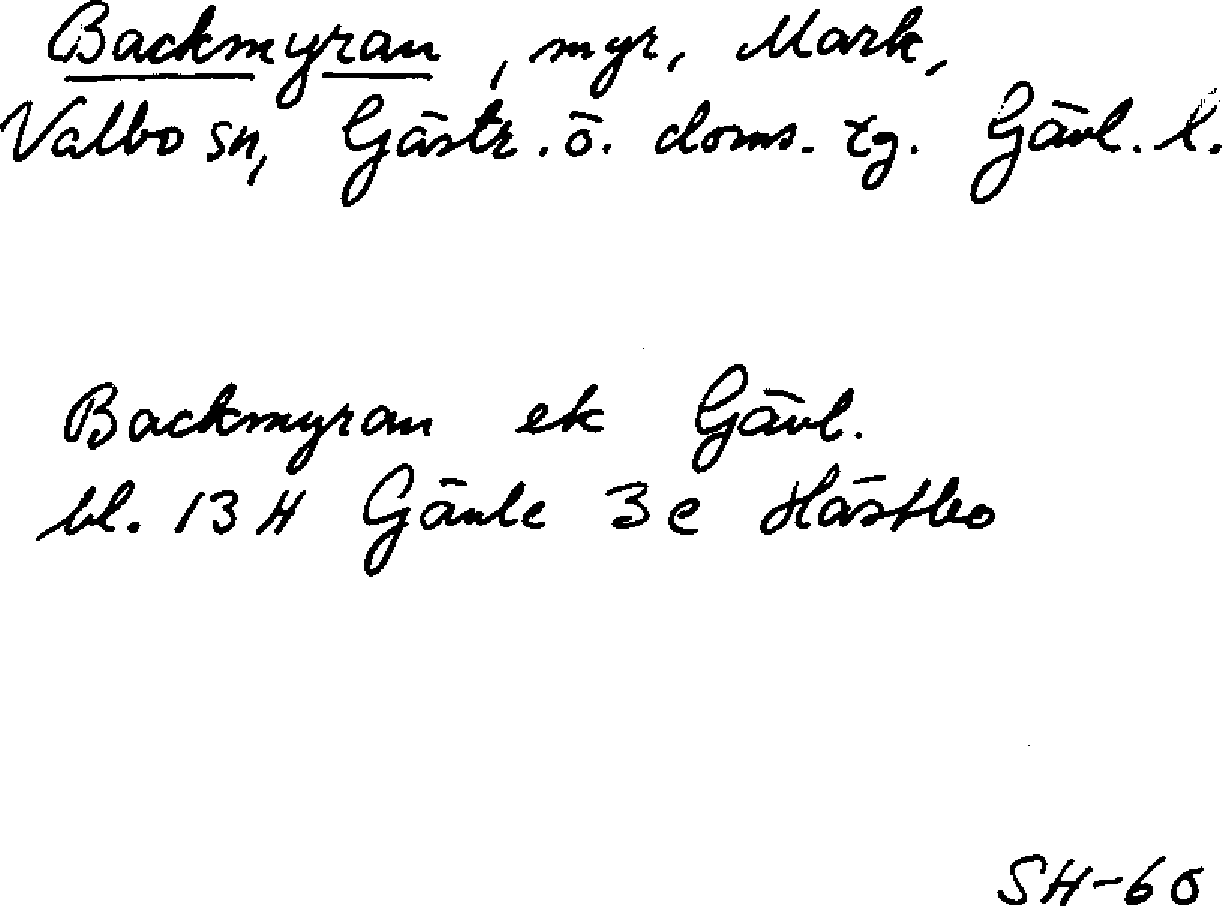 Backmyran, myr, Mark,
Valbo sn, Gästr. ö. doms. tg. Gävl. l.
Backmyran ek Gävl.
bl. 13 H Gävle 3 e Hästbo
SH-60